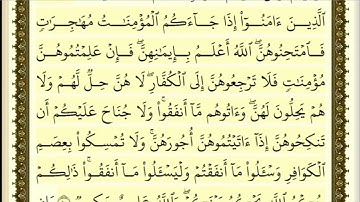 ٱلَّذِينَ ءَامَنُوٓا۟ إِذَا جَآءَكُمُ ٱلْمُؤْمِنَٰتُ مُهَٰجِرَٰتٍ
فَٱمْتَحِنُوهُنَّ ۖ ٱللَّهُ أَعْلَمُ بِإِيمَٰنِهِنَّ ۖ فَإِنْ عَلِمْتُمُوهُنَّ
مُؤْمِنَٰتٍ فَلَا تَرْجِعُوهُنَّ إِلَى ٱلْكُفَّارِ ۖ لَا هُنَّ حِلٌّ لَّهُمْ وَلَا
هُمْ يَحِلُّونَ لَهُنَّ ۖ وَءَاتُوهُم مَّآ أَنفَقُوا۟ ۚ وَلَا جُنَاحَ عَلَيْكُمْ أَن
تَنكِحُوهُنَّ إِذَآ ءَاتَيْتُمُوهُنَّ أُجُورَهُنَّ ۚ وَلَا تُمْسِكُوا۟ بِعِصَمِ
ٱلْكَوَافِرِ وَسْـَٔلُوا۟ مَآ أَنفَقْتُمْ وَلْيَسْـَٔلُوا۟ مَآ أَنفَقُوا۟ ۚ ذَٰلِكُمْ